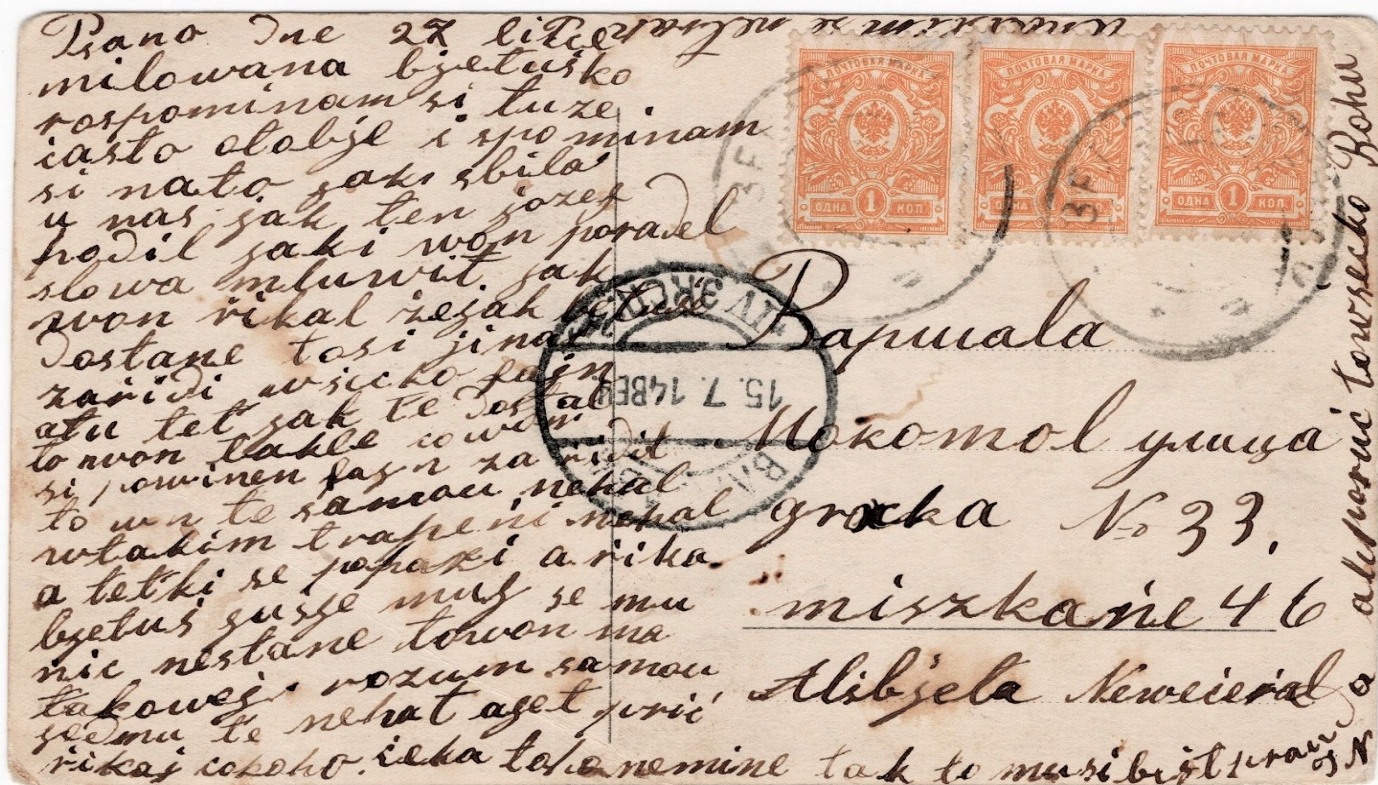 Psano Dne 27 litce
milowana bzetusko
rospominam si tuze
casto otobje i spominam
si nato jak sbila
u nas jak ten jozef
hodil jaki won poradel
slowa mluwit jak
won rikal zejak
Dostane tosi jinak
zaridi wsicko fajn
atu tet jak te Dostal
to won takle cowon
si powinen fajn zaridit
to won te samou nehal
wtakim trapeni nehal
a tetki se popozi a rika
bzetus jusje muz se mu
nic nestane towon ma
takowej rozum samou
jedmu te nehat ajet pric
rikaj cokoho ceka toho nemine tak to musi bejt prawda
a alesporuc towsecko Bohu
ПОЧТОВАЯ МАРКА
ПОЧТОВАЯ МАРКА
ПОЧТОВАЯ МАРКА
ОДНА 1 КОП.
ОДНА 1 КОП.
ОДНА 1 КОП.
15.7.14
Варшава
Мокотов улица
grocka № 33,
miszkańe 46
Alibjeta Neweceral